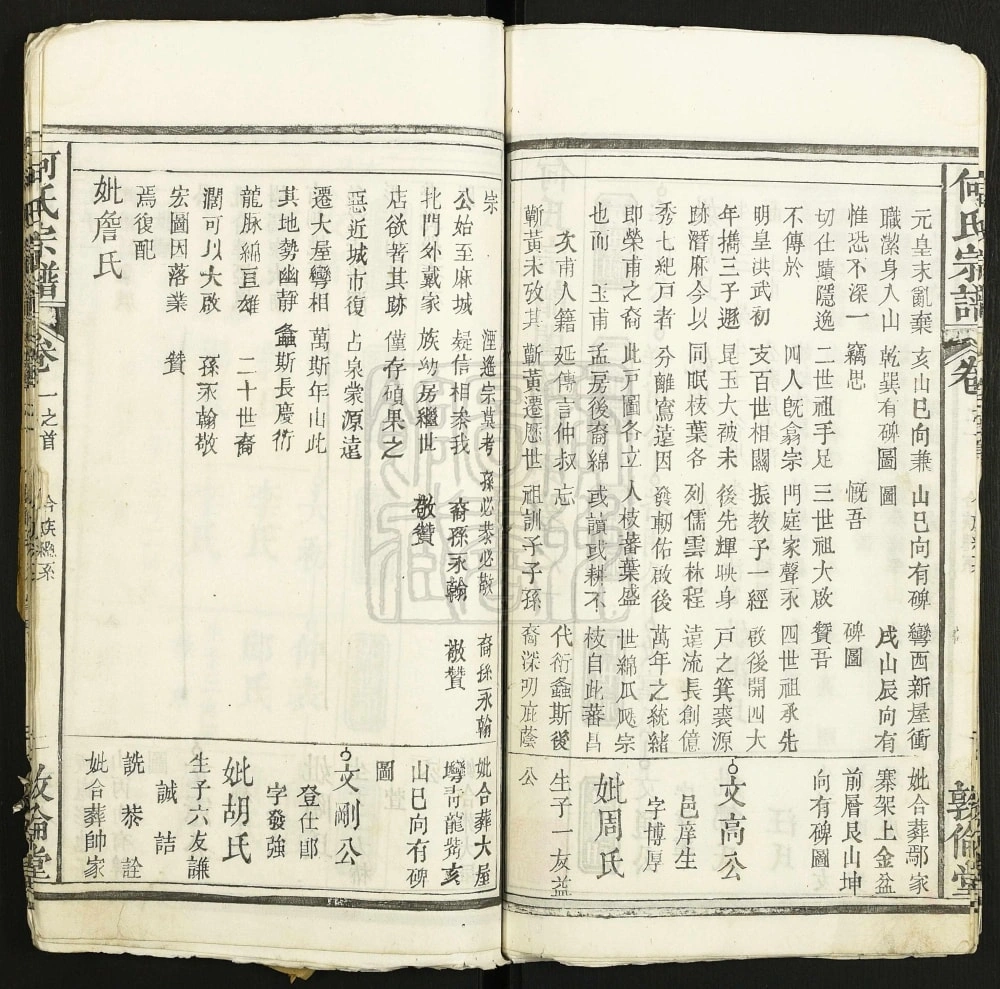 何氏宗譜
卷
敦倫堂
元皇末亂棄
職潔身入山
惟恐不深一
切仕蹟隱逸
不傳於
明皇洪武初
年攜三子遯
跡潛麻今以
秀七紀戸者
即榮甫之裔
也而玉甫
次甫人籍
蘄黃未攷其
宗
公始至麻城
北門外戴家
店欲著其跡
惡近城市復
遷大屋彎相
其地勢幽靜
龍脉綿亘雄
濶可以大啟
宏圖因落業
焉復配
妣詹氏
亥山巳向兼
乾巽有碑圖
竊思
二世祖手足
四人旣翕宗
支百世相關
昆玉大被未
同眠枝葉各
分離窵遠因
此戸圖各立
孟房後裔綿
延傳言仲叔
蘄黃遷應世
湮遙宗莫考
疑信相叅我
族幼房繼世
僅存碩果之
占泉蒙源遠
萬斯年山此
螽斯長慶衍
二十世裔
孫永翰敬
贊
山巳向有碑
圖
慨吾
三世祖大啟
門庭家聲永
振教子一經
後先輝映身
列儒雲林程
發軔佑啟後
人枝蕃葉盛
或讀或耕不
忘
祖訓子子孫
孫必恭必敬
裔孫永翰
敬贊
彎西新屋衝
戌山辰向有
碑圖
贊吾
四世祖承先
啟後開四大
戸之箕裘源
遠流長創億
萬年之統緒
世綿瓜瓞宗
枝自此蕃昌
代衍螽斯後
裔深叨庇蔭
裔孫永翰
敬贊
妣合葬鄢家
寨架上金盆
前層艮山坤
向有碑圖
文高公
邑庠生
字博厚
妣周氏
生子一友益
公
妣合葬大屋
彎青龍嘴亥
山巳向有碑
圖
文剛公
登仕郎
字發強
妣胡氏
生子六友謙
誠 誥
詵 恭 詮
妣合葬帥家
何氏宗譜
卷一之首
敦倫堂